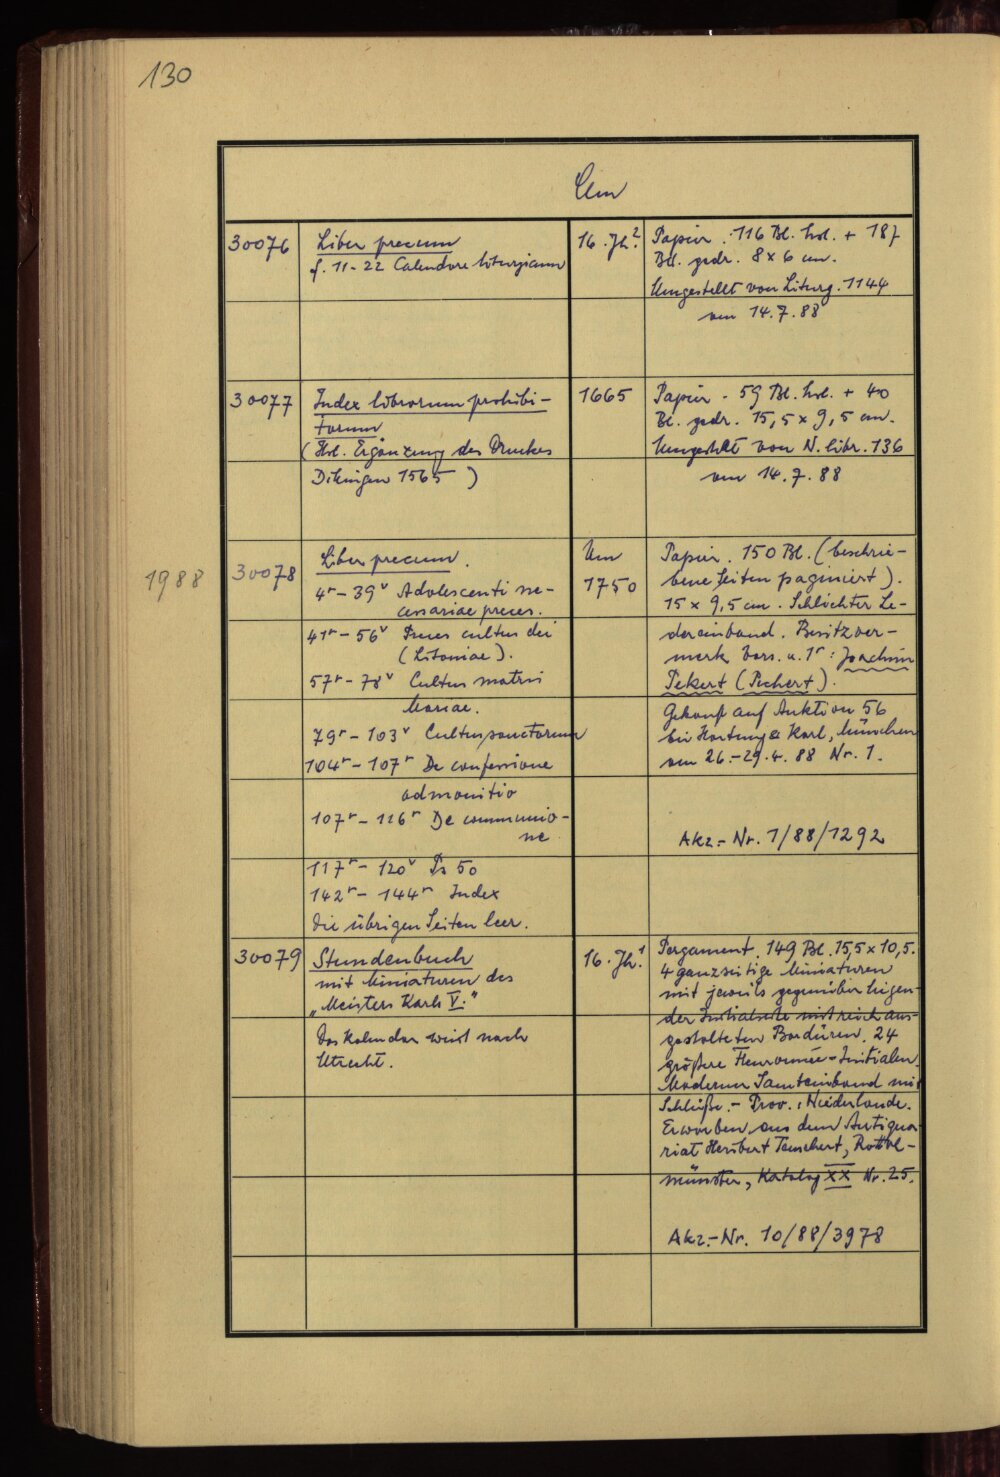 130
Clm
30076
Liber precum
f. 11-22 Calendare liturgicum
16. Jh.²
Papier. 116 Bl. hsl. + 187
Bll. gedr. 8 x 6 cm.
Umgestellt von Liturg. 1144
am 14.7.88
30077
Index librorum prohibi-
torum
(Hsl. Ergänzung des Druckes
Dilingen 1565)
1665
Papier. 59 Bl. hsl. + 40
Bl. gedr. 15,5 x 9,5 cm.
Umgestellt von N. libr. 136
am 14.7.88
1988
30078
Liber precum.
4r - 39v Adolescenti ne-
cessariae preces.
41r - 56v Preces cultus dei
(Litaniae).
57r - 78v Cultus matris
Mariae.
79r - 103v Cultus sanctorum
104r - 107r De confessione
admonitio
107r - 116r De communio-
ne
117r - 120v Ps 50
142r - 144r Index
Die übrigen Seiten leer.
Um
1750
Papier. 150 Bl. (beschrie-
bene Seiten paginiert).
15 x 9,5 cm. Schlichter Le-
dereinband. Besitzver-
merk Vors. u. 1r: Joachim
Pekert (Pechert).
Gekauft auf Auktion 56
bei Hartung & Karl, München
am 26.-29.4.88 Nr. 1.
Akz.-Nr. 1/88/1292
30079
Stundenbuch
mit Miniaturen des
„Meisters Karls V."
Das Kalendar weist nach
Utrecht.
16. Jh.¹
Pergament. 149 Bl. 15,5 x 10,5.
4 ganzseitige Miniaturen
mit jeweils gegenüber liegen-
der Initialseite mit reich aus-
gestalteten Bordüren. 24
größere Fleuronnée-Initialen.
Moderner Samteinband mit
Schließe. - Prov.: Niederlande.
Erworben aus dem Antiqua-
riat Heribert Tenschert, Rotthal-
münster, Katalog XX Nr. 25.
Akz.-Nr. 10/88/3978